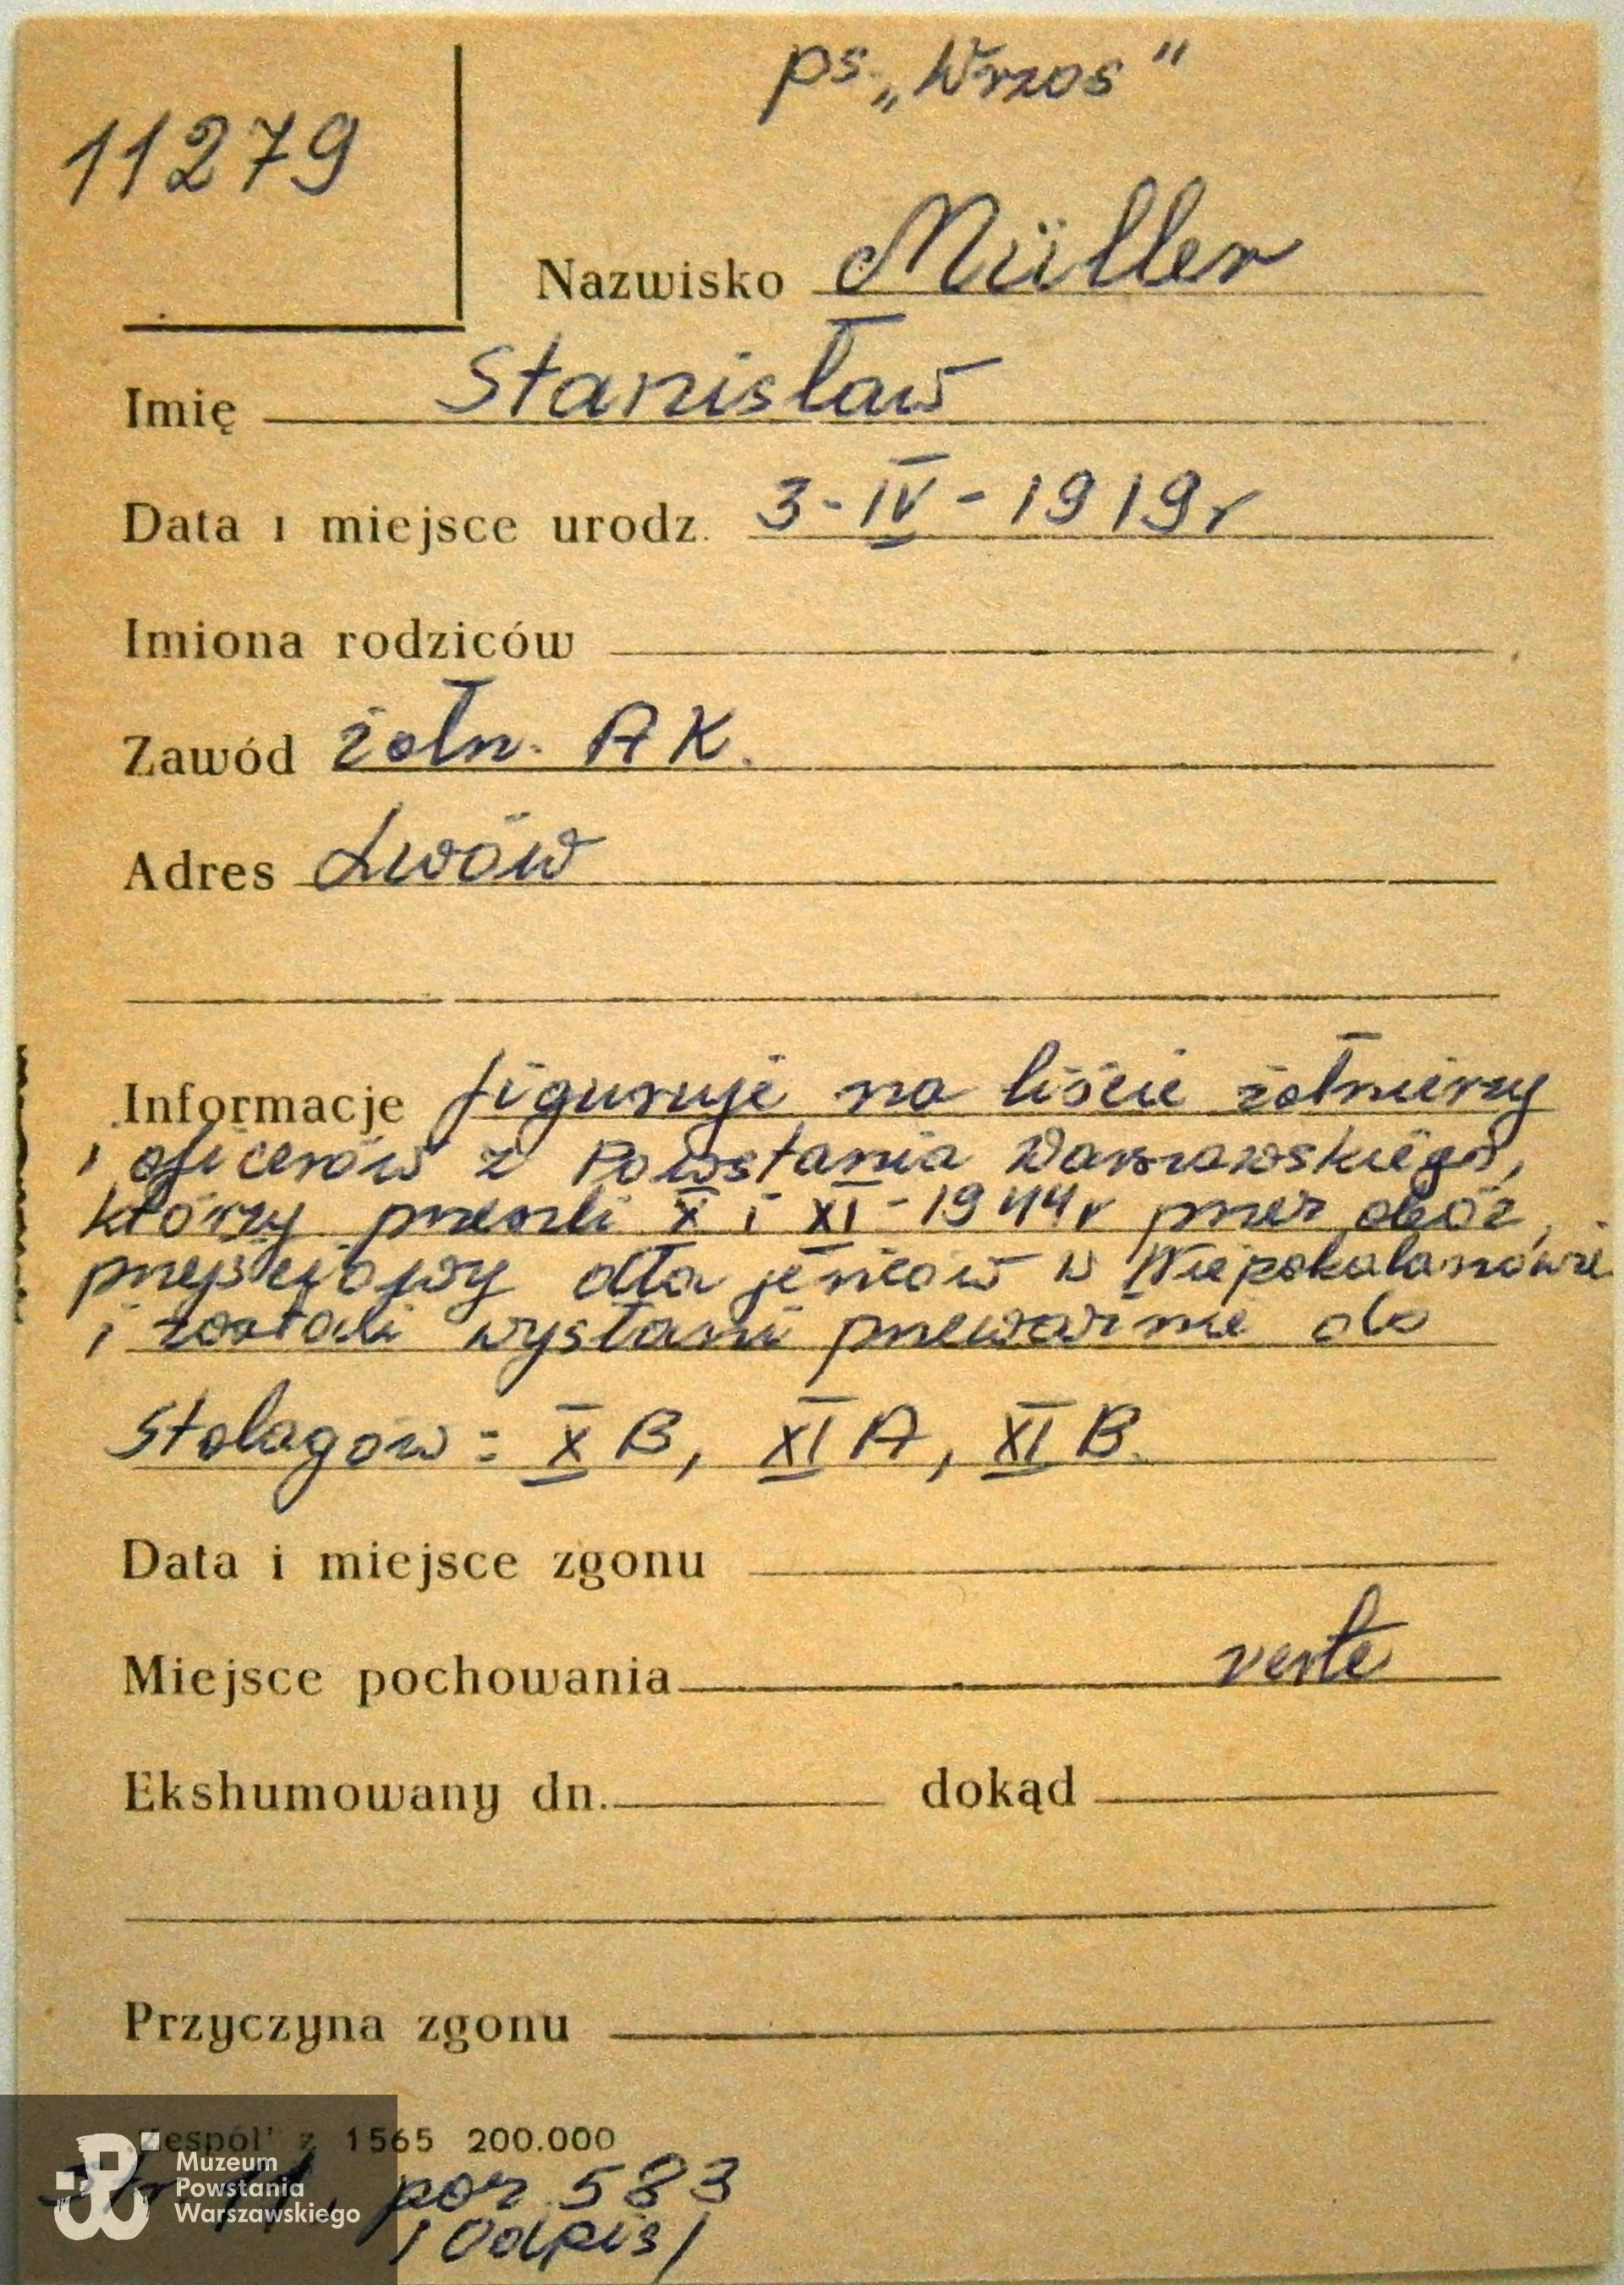 ps. „Wrzos"
11279
Nazwisko Müller
Imię Stanisław
Data i miejsce urodz. 3-IV-1919r
Imiona rodziców
Zawód żołn. AK.
Adres Lwów
Informacje figuruje na liście żołnierzy
i oficerów z Powstania Warszawskiego,
którzy przeszli X i XI-1944r przez obóz
przejściowy dla jeńców w Niepokalanowie
i zostali wysłani przeważnie do
Stalagów: X B, XI A, XI B.
Data i miejsce zgonu
Miejsce pochowania verte
Ekshumowany dn. dokąd
Przyczyna zgonu
„Zespół" z 1565 200.000
str 11. poz 583
/Odpis/
Muzeum
Powstania
Warszawskiego